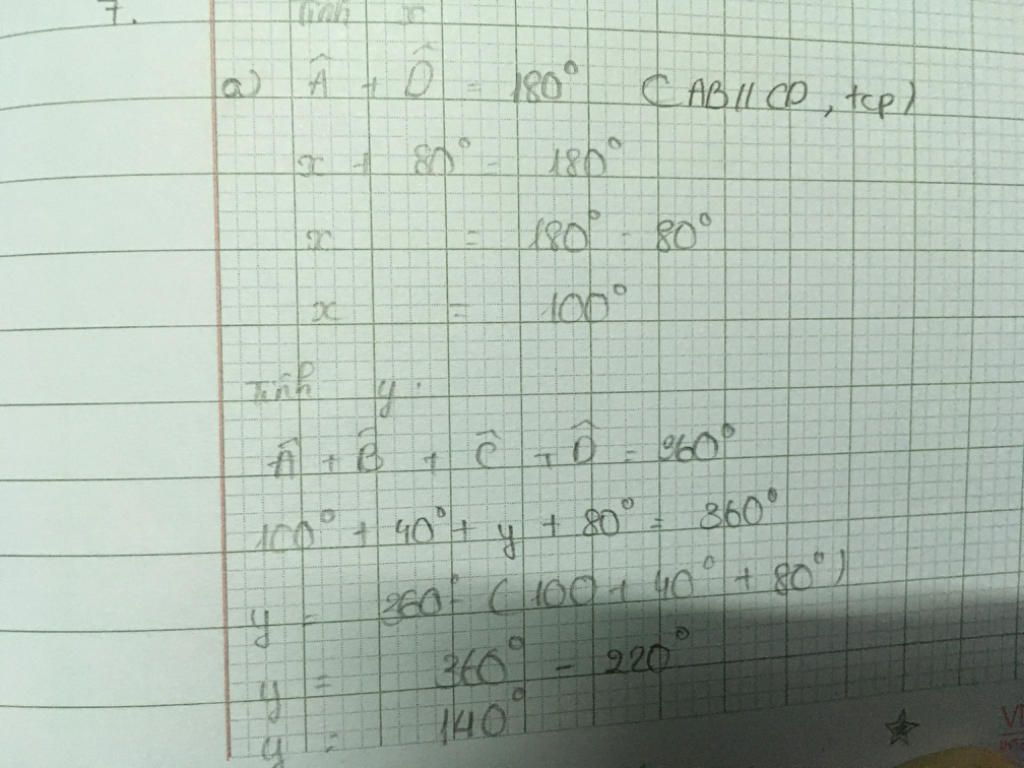 7. Tính x
a) Â + D̂ = 180° (AB // CD, tcp)
x + 80° = 180°
x = 180° - 80°
x = 100°
Tính y.
Â + B̂ + Ĉ + D̂ = 360°
100° + 40° + y + 80° = 360°
y = 360° - (100 + 40° + 80°)
y = 360° - 220°
y = 140°